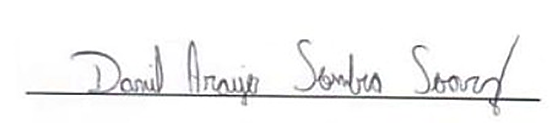 Daniel Araujo Sombra Soares